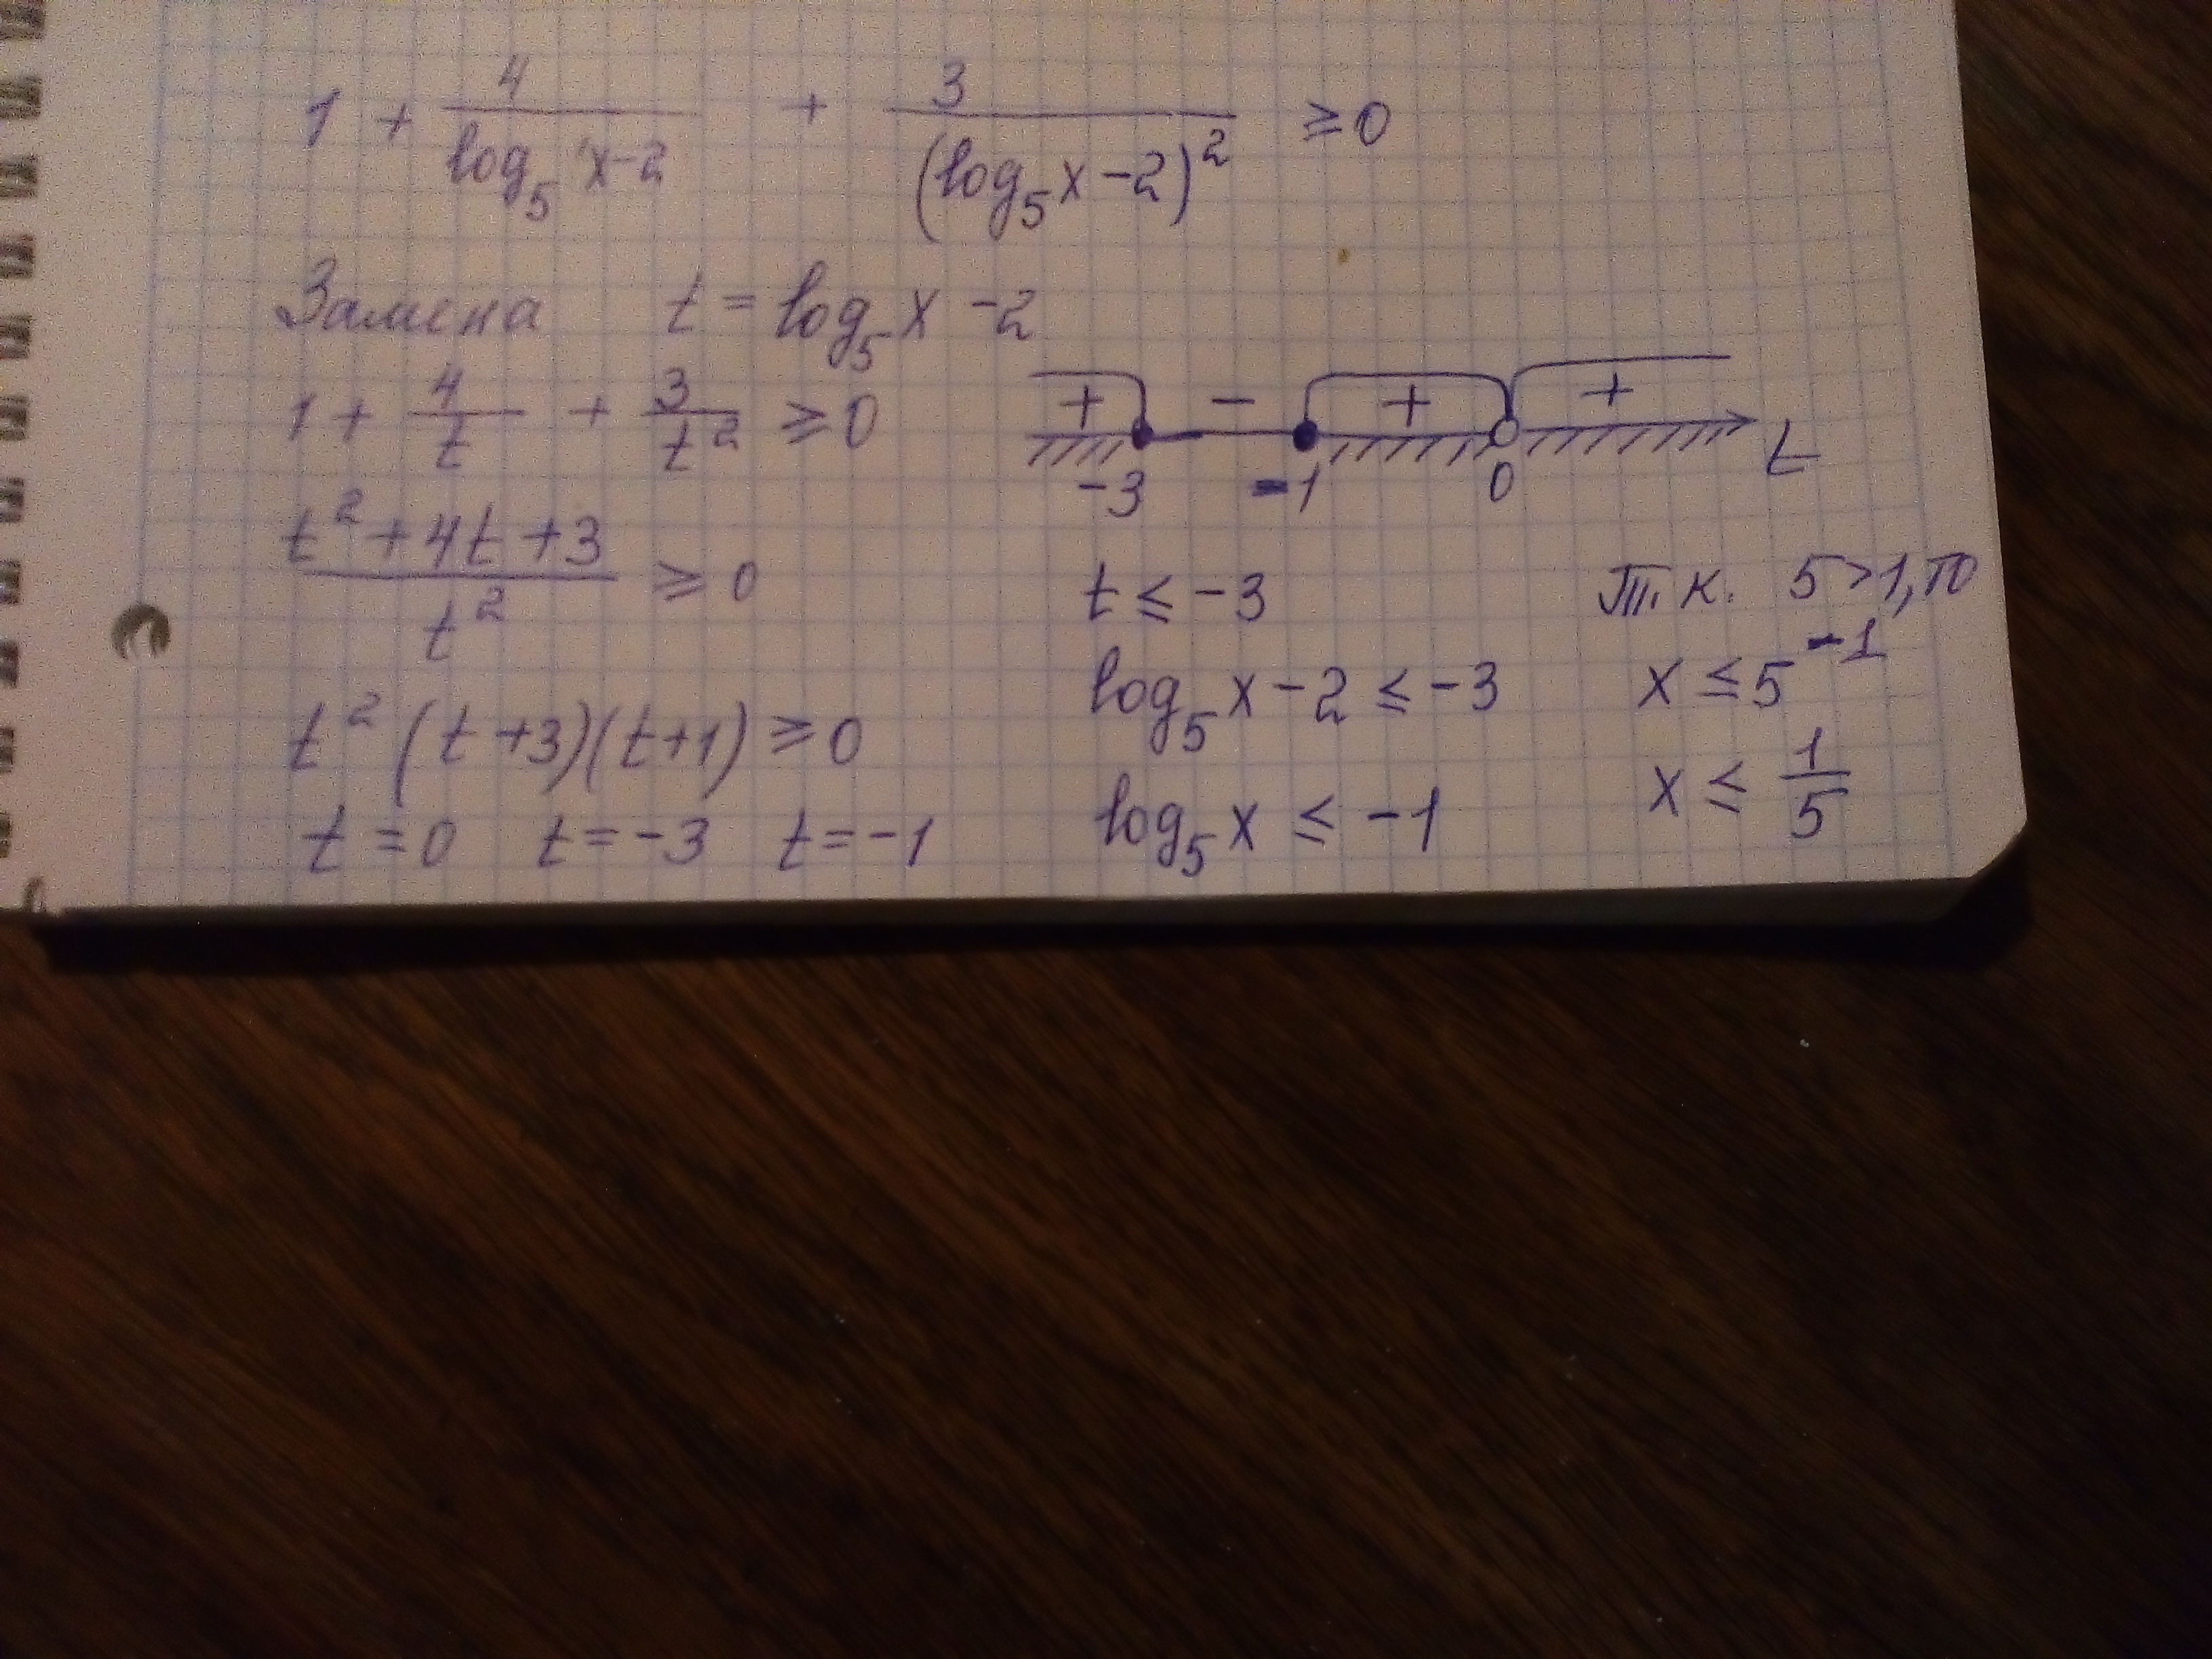 1 + 4/(log₅ x-2) + 3/(log₅x-2)² ≥0
Замена t = log₅x -2
1 + 4/t + 3/t² ≥0
(t²+4t+3)/t² ≥ 0
t²(t+3)(t+1) ≥ 0
t=0 t=-3 t=-1
+ - + +
-3 -1 0 t
t ≤ -3
log₅x-2 ≤ -3
log₅x ≤ -1
Т.к. 5>1, то
x ≤ 5⁻¹
x ≤ 1/5